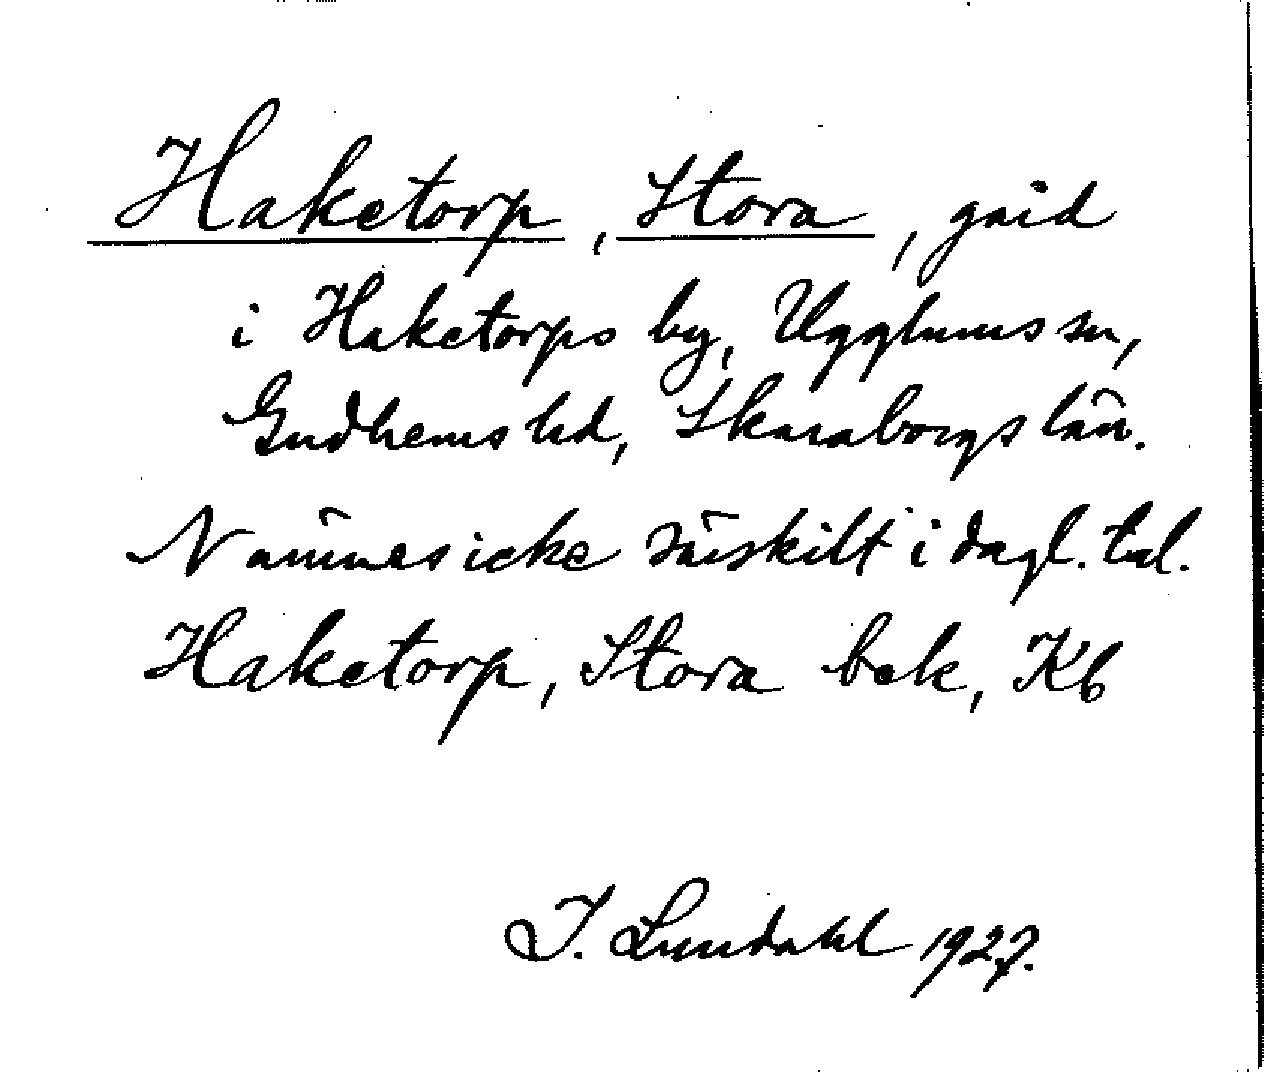 Haketorp, Stora, gård
i Haketorps by, Ugglums sn,
Gudhems hd, Skaraborgs län.
Nämnes icke särskilt i dagl. tal.
Haketorp, Stora bek, Kb
I. Lundahl 1927.